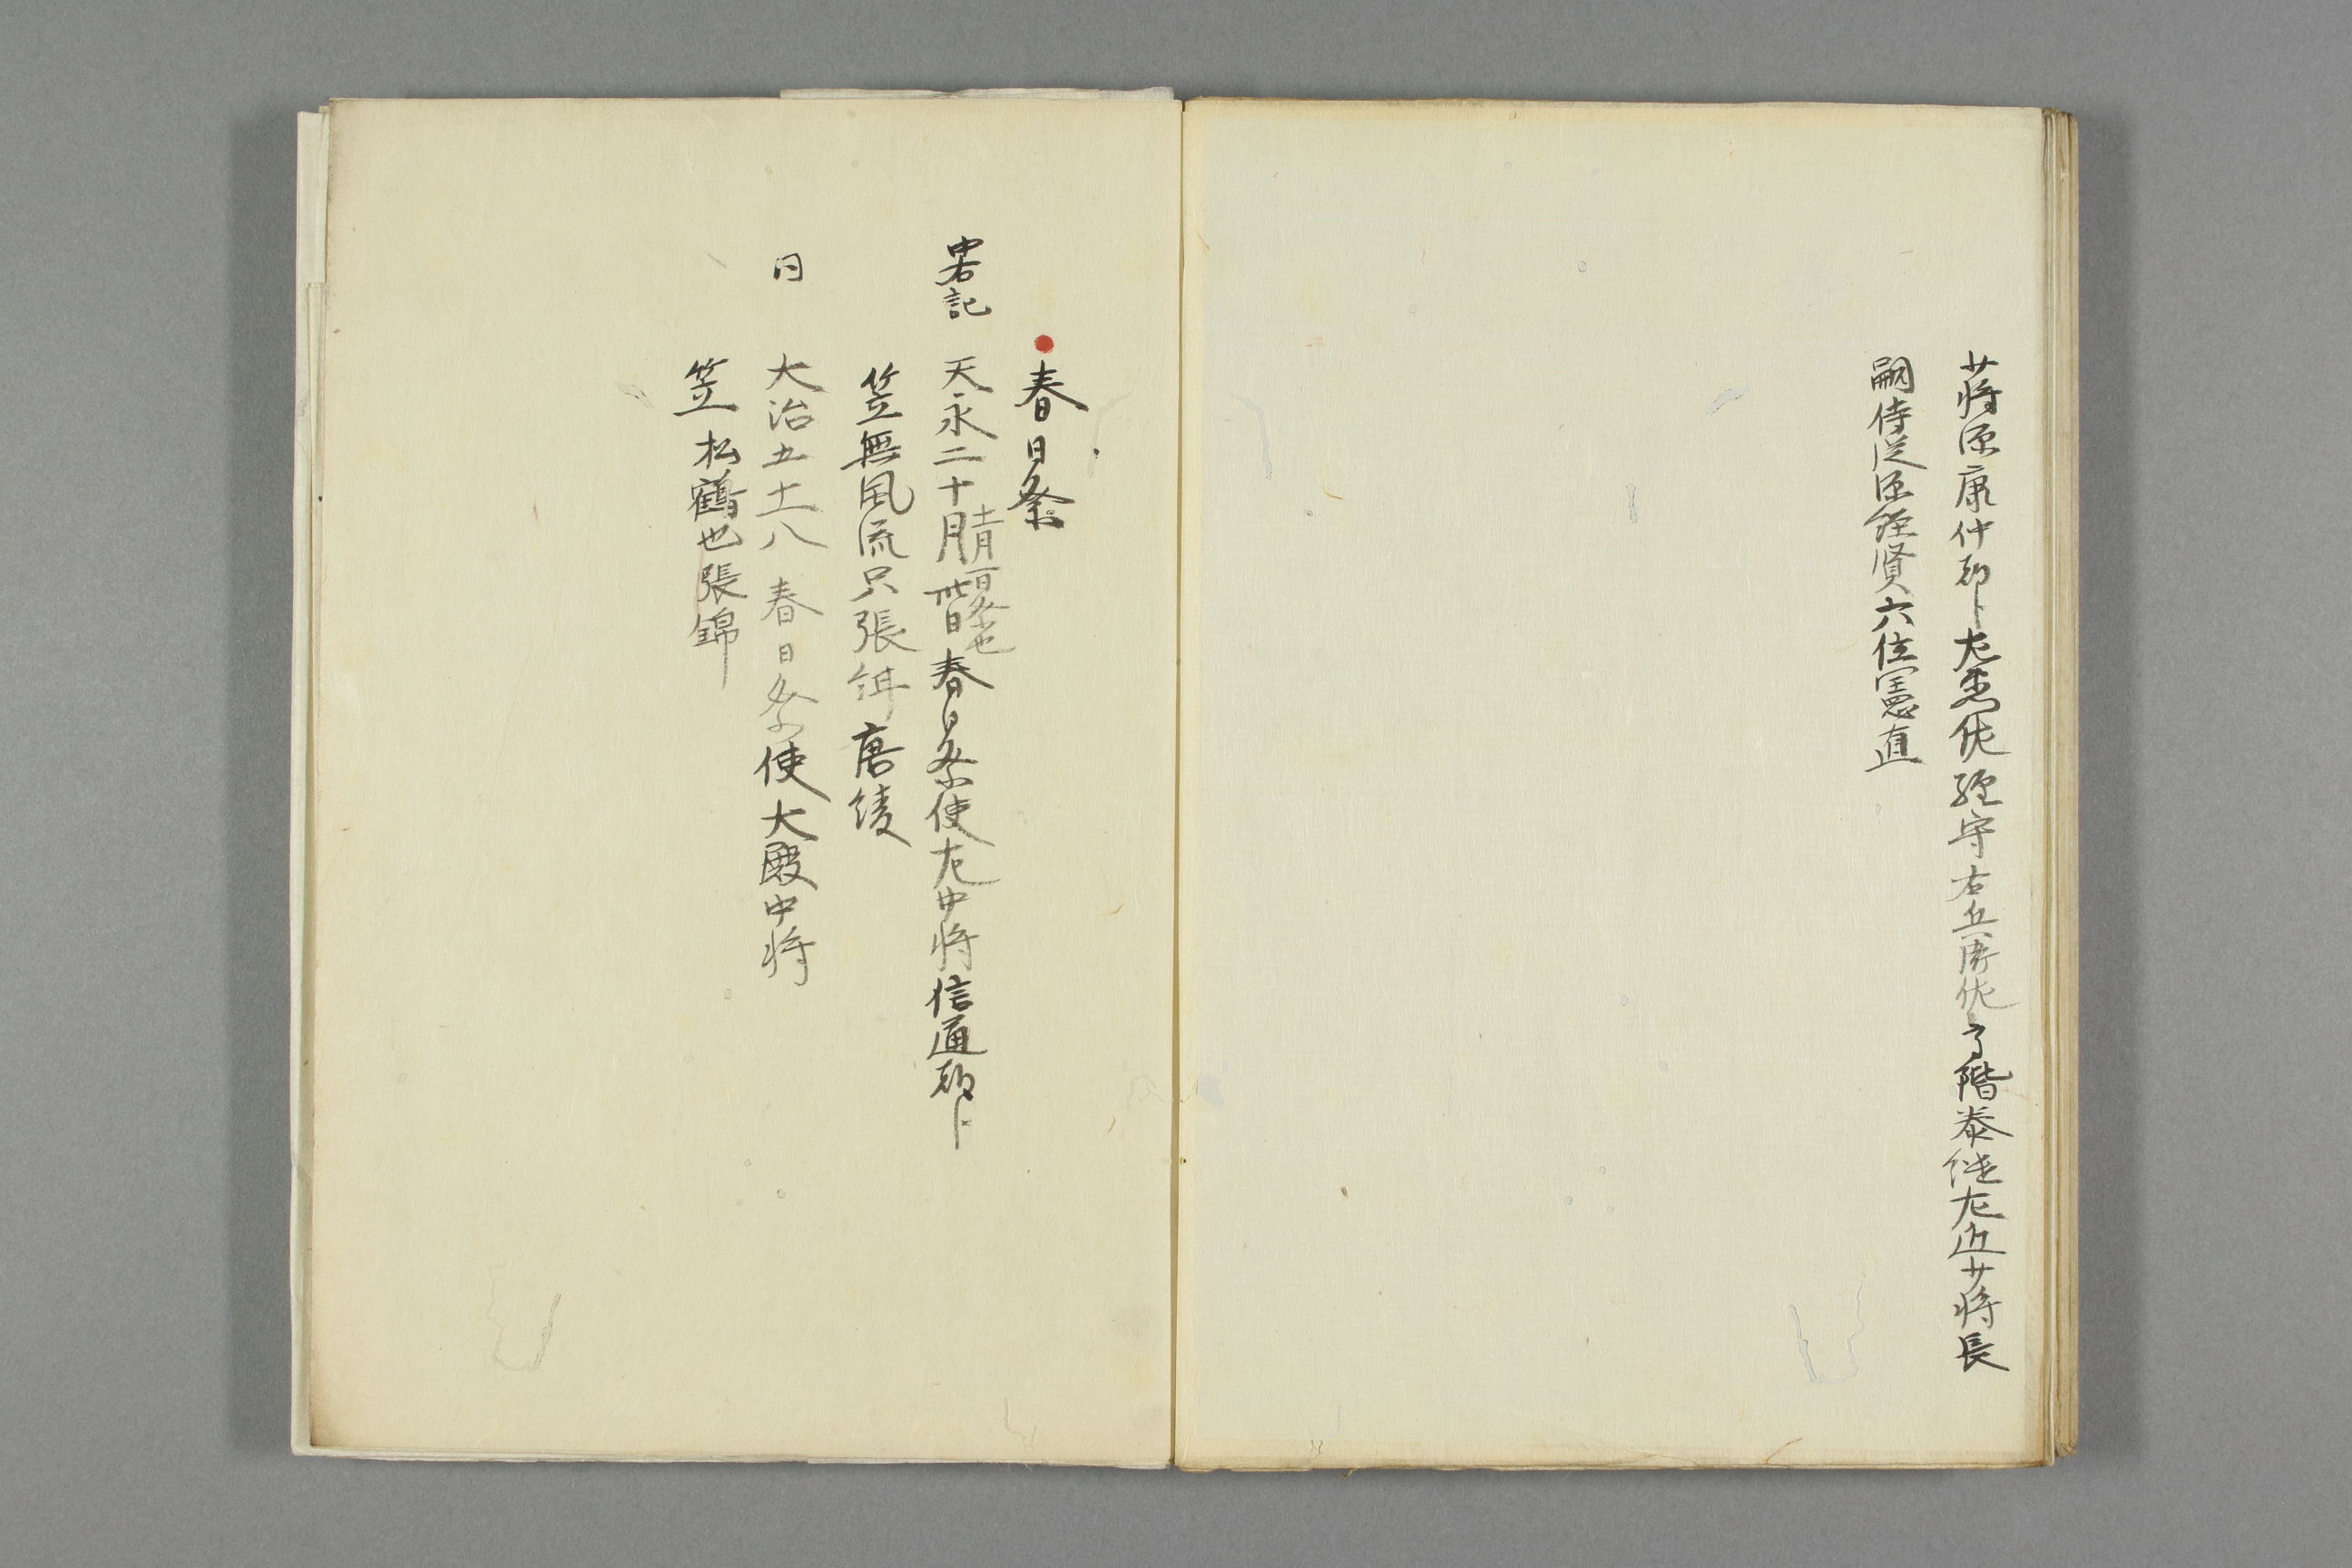 少将源康仲朝臣左兵衛佐経守右兵衛佐高階泰継左近少将長
嗣侍従源経賢六位憲直
春日祭
中右記 天永二十月卅日春日祭使左中将信通朝臣
笠無風流只張唐綾
同 大治五十一八 春日祭使大殿中将
笠松鶴也張錦